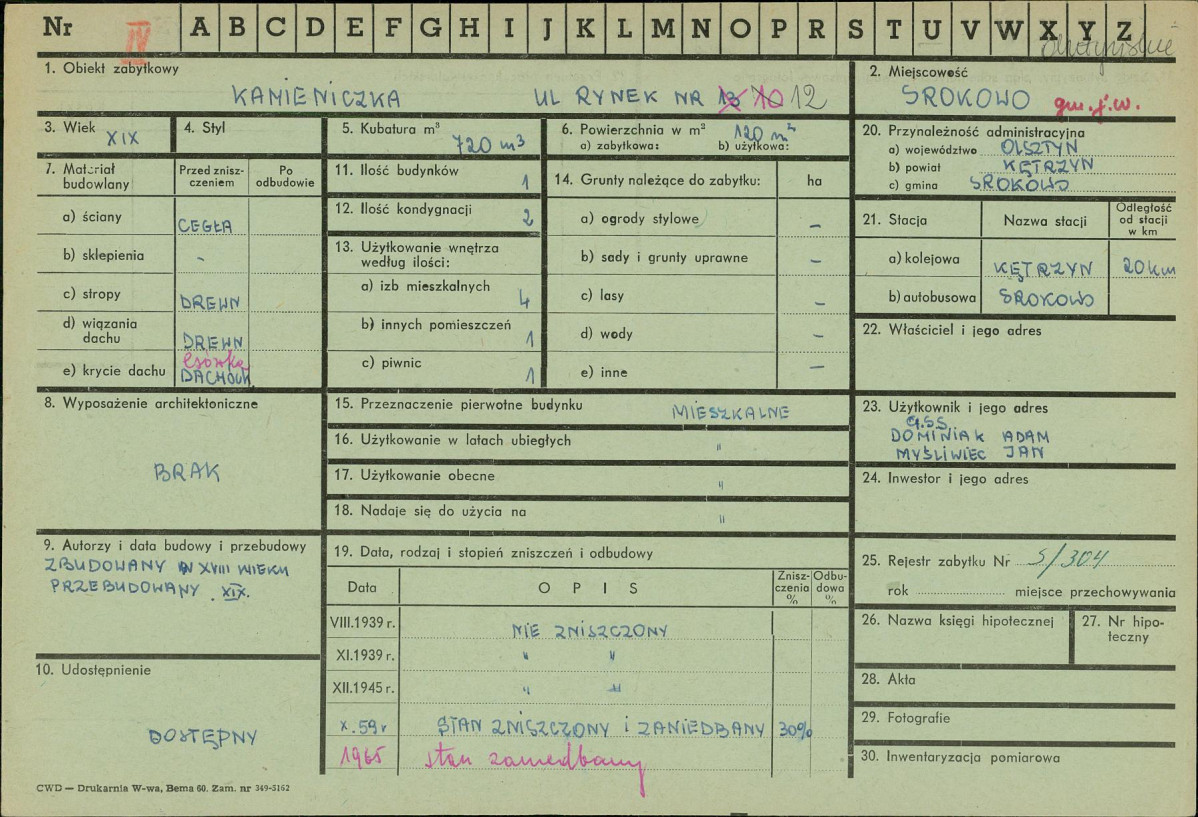 Nr IV A B C D E F G H I J K L M N O P R S T U V W X Y Z
olsztyńskie
1. Obiekt zabytkowy
KAMIENICZKA UL RYNEK NR 13 10 12
2. Miejscowość
SROKOWO gm. j.w.
3. Wiek XIX
4. Styl
5. Kubatura m³ 720 m3
6. Powierzchnia w m² 120 m²
a) zabytkowa: b) użytkowa:
7. Materiał budowlany
Przed zniszczeniem
Po odbudowie
a) ściany CEGŁA
b) sklepienia -
c) stropy DREWN
d) wiązania dachu DREWN
e) krycie dachu DACHÓWK
8. Wyposażenie architektoniczne
BRAK
9. Autorzy i data budowy i przebudowy
ZBUDOWANY W XVIII WIEKU
PRZEBUDOWANY XIX.
10. Udostępnienie
DOSTĘPNY
11. Ilość budynków 1
12. Ilość kondygnacji 2
13. Użytkowanie wnętrza według ilości:
a) izb mieszkalnych 4
b) innych pomieszczeń 1
c) piwnic 1
14. Grunty należące do zabytku: ha
a) ogrody stylowe –
b) sady i grunty uprawne –
c) lasy –
d) wody –
e) inne –
15. Przeznaczenie pierwotne budynku MIESZKALNE
16. Użytkowanie w latach ubiegłych "
17. Użytkowanie obecne "
18. Nadaje się do użycia na "
19. Data, rodzaj i stopień zniszczeń i odbudowy
Data OPIS Zniszczenia % Odbudowa %
VIII.1939 r. NIE ZNISZCZONY
XI.1939 r. " "
XII.1945 r. " "
X.59r STAN ZNISZCZONY I ZANIEDBANY 30%
1965 stan zaniedbany
20. Przynależność administracyjna
a) województwo OLSZTYN
b) powiat KĘTRZYN
c) gmina SROKOWO
21. Stacja Nazwa stacji Odległość od stacji w km
a) kolejowa KĘTRZYN 20 km
b) autobusowa SROKOWO
22. Właściciel i jego adres
23. Użytkownik i jego adres
G.S.S.
DOMINIAK ADAM
MYŚLIWIEC JAN
24. Inwestor i jego adres
25. Rejestr zabytku Nr S/304
rok miejsce przechowywania
26. Nazwa księgi hipotecznej
27. Nr hipoteczny
28. Akta
29. Fotografie
30. Inwentaryzacja pomiarowa
CWD — Drukarnia W-wa, Bema 60. Zam. nr 349-5162